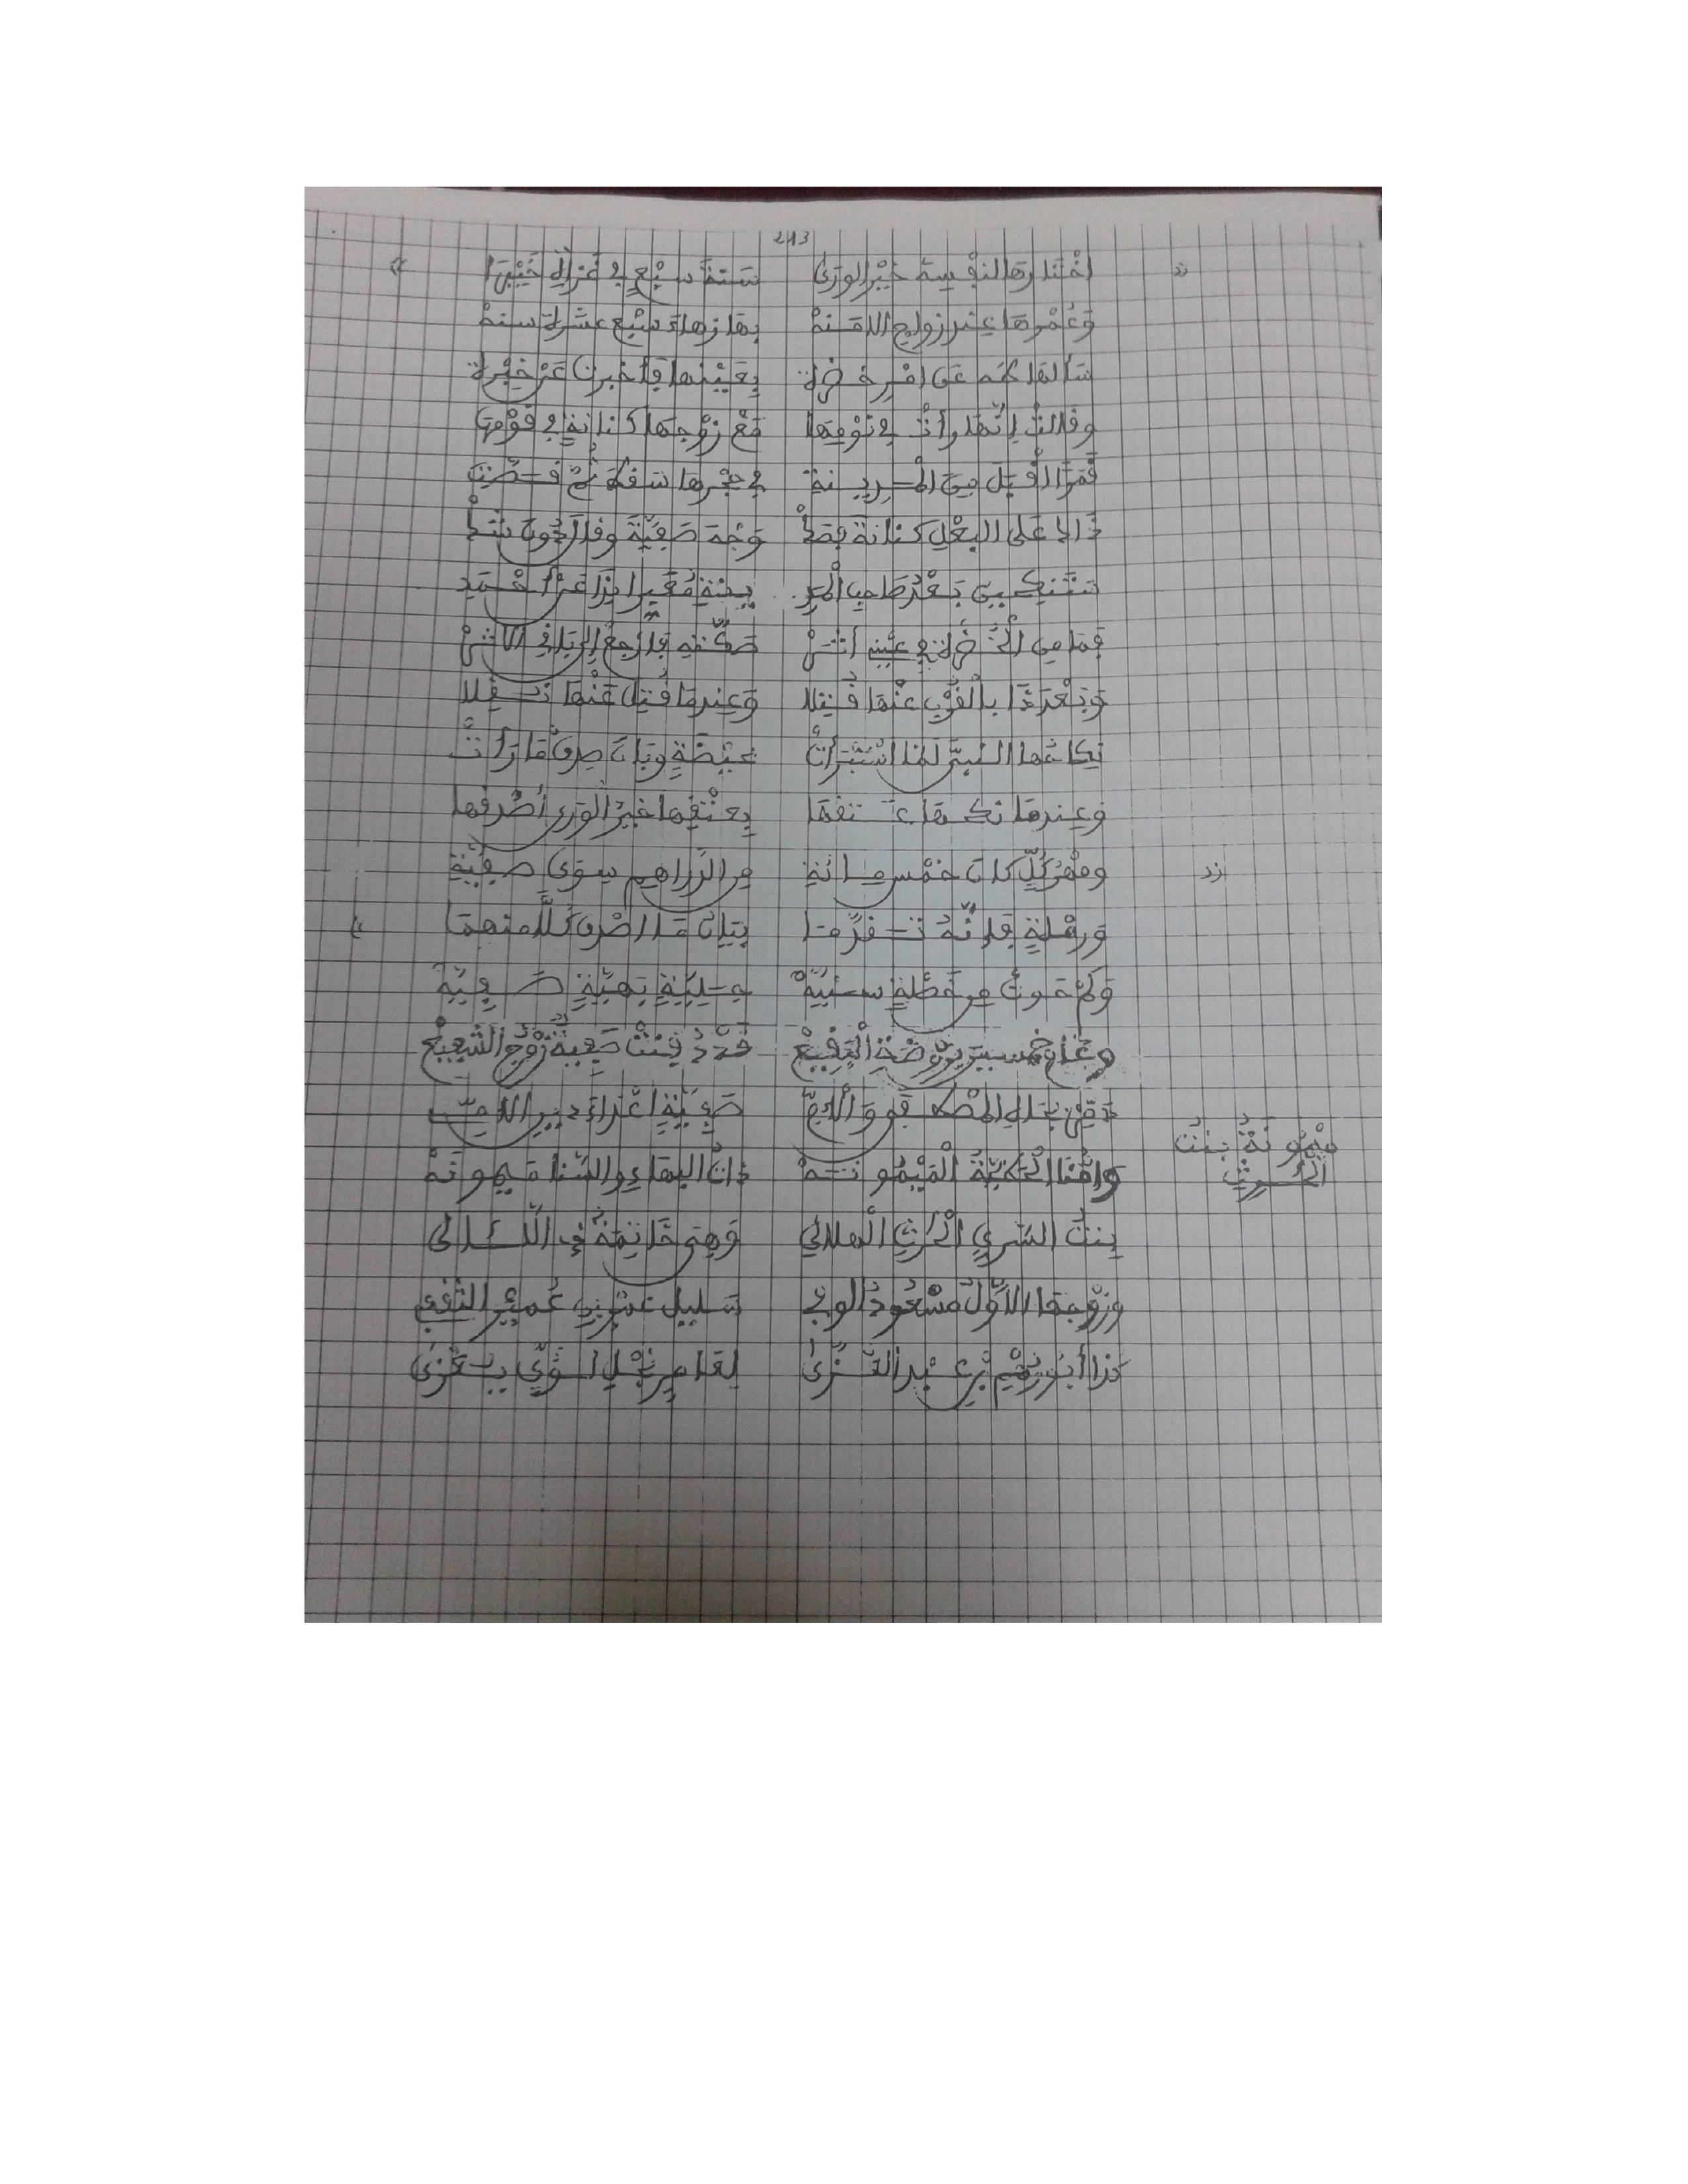 243
اخْتارها لنفسه خيْر الورَىٰ سنة سبْعٍ في غزاة خيْبرَا
وَعُمْرها عند زواج الامنهْ بها زهاء سبْع عشرة سنهْ
سألها طه عَن امْر خضرة بعيْنها فأخبرت عَنْ خبْرة
وقالتْ إنّها رأتْ في نوْمها مع زوْجها كنانةٍ في قوْمها
قمرًا اقبل من المدينة في حجْرها سقط ثمّ قصّت
ذا على البعْل كنانة فلطْ وجْه صفيّة وقال دون شطْ
ستنكحين بعْد صاحب المدينة معيّرا بذا عن أحمد
فما من الْخضرة في عينه أثرْ
وبعْدَ ذا بالقرْب عنْها قُتلا وعندما قُتل عنْها نفلا
نكاحها النبيّ لما استبرأتْ بحيْضةٍ وبان صدق ما رأتْ
وعندما نكحها عتقها بعتْقها خيْر الورى أصْدقها
ومهْر كلّ كان خمْس مائة من الدراهم سوى صفيّة
ورمْلةٍ فإنّه تقدّما بيان ما اصْدق كلّا منهما
وكمْ حوتْ من خصْلةٍ سنيّهْ جليّةٍ بهيّةٍ صفيّهْ
وعام خمسين بروْضة البقيعْ قدْ دُفنتْ صفيّةٌ زوْج الشّفيعْ
صفيّةٍ اعْداءَ دين اللّه
وامّنا التقيّة الْميْمونهْ ذات البهاء والسّنا ميمونهْ
ميْمونةُ بنتُ الحرث
بنتُ السّري الْحرث الْهلالي وهي خاتمةٌ في اللّئالي
وزوْجها الاوّل مسْعودُ الوفي سليل عمْرو بن عُميْر الثّقفي
كذا أبو رهْم بن عبْد العُزّىٰ لعامر نجْل لؤيّ يعْزىٰ